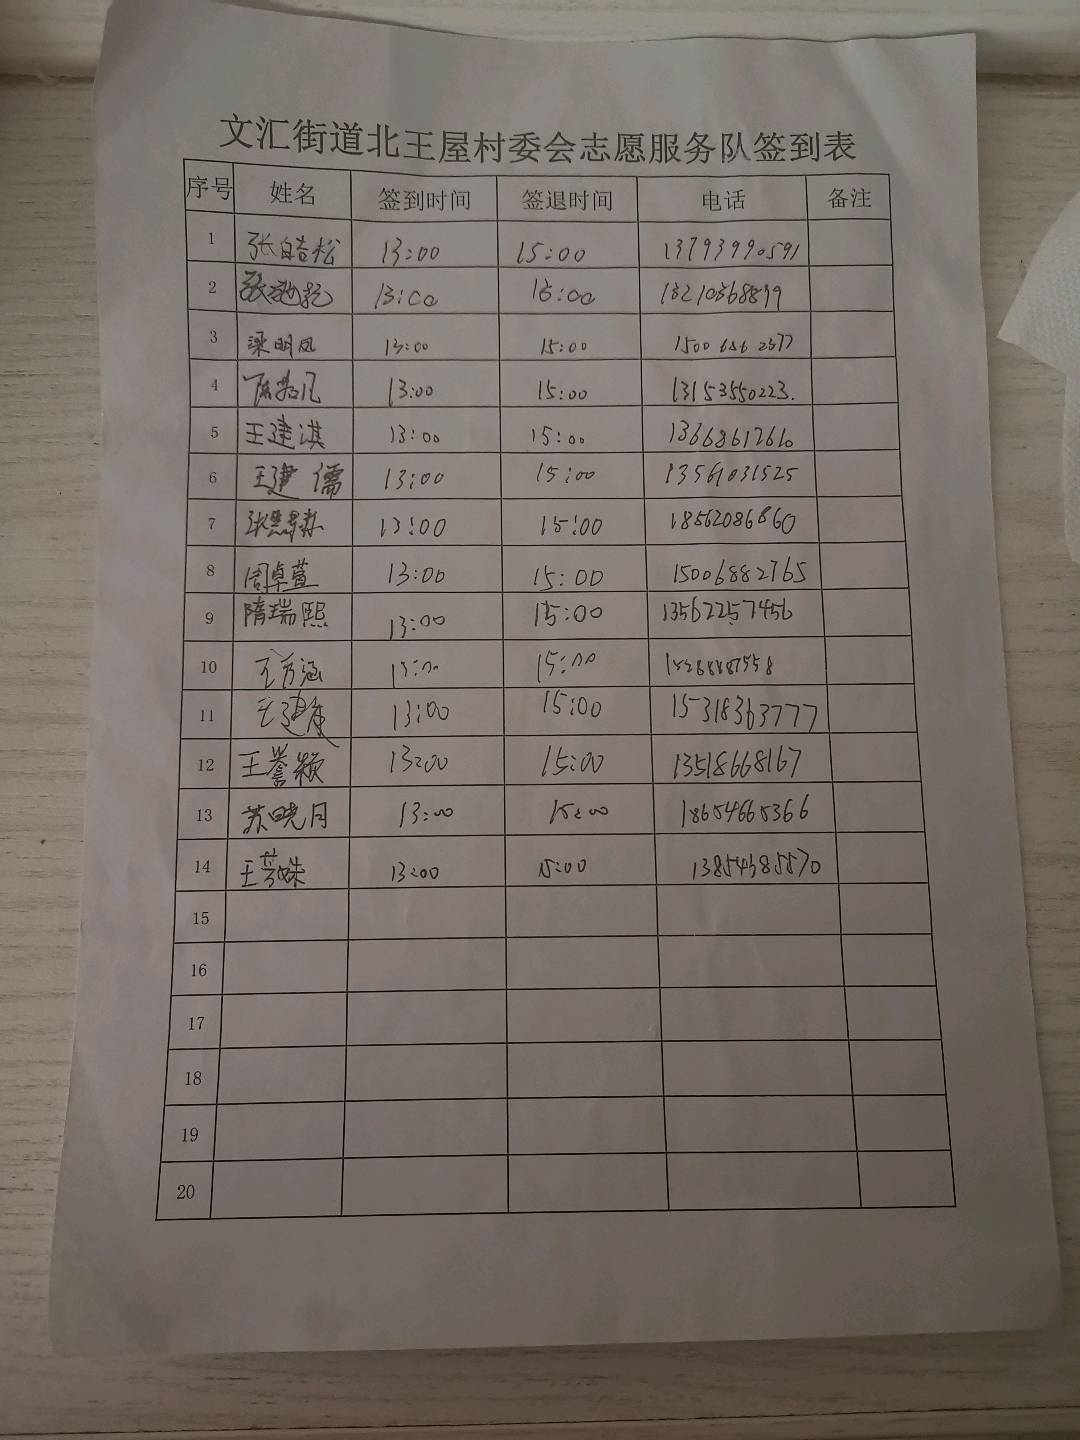 文汇街道北王屋村委会志愿服务队签到表
序号 姓名 签到时间 签退时间 电话 备注
1 张皓松 13:00 15:00 13793990591
2 张 13:00 15:00 13210368899
3 梁明凤 13:00 15:00
4 13:00 15:00 13153550223.
5 王建淇 13:00 15:00 13668617610
6 王建儒 13:00 15:00 13561031525
7 13:00 15:00 18562086860
8 周卓萱 13:00 15:00 15006882765
9 隋瑞熙 13:00 15:00 13562257456
10 王方涵 13:00 15:00
11 王建 13:00 15:00 15318363777
12 王誉颖 13:00 15:00 13518668167
13 苏晓月 13:00 15:00 18654665366
14 王 13:00 15:00 13854685570
15
16
17
18
19
20